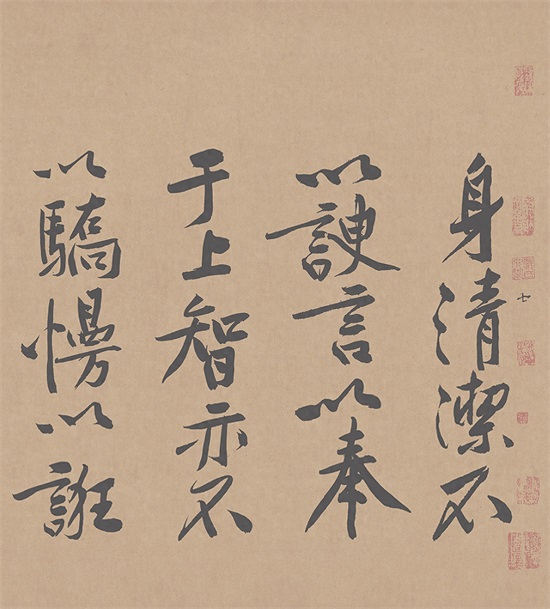 七
身清潔不
以諛言以奉
于上智亦不
以驕慢以誑